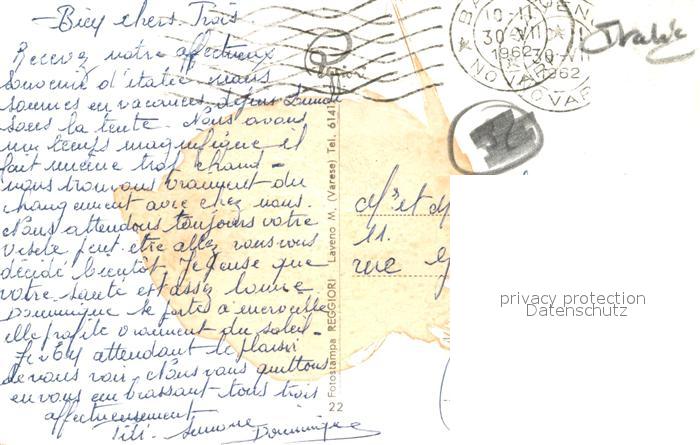 Bien chers Trois
Recevez notre affectueux
souvenir d'Italie nous
sommes en vacances depuis Lundi
sous la tente. Nous avons
un temps magnifique il
fait même trop chaud -
nous trouvons vraiment du
changement avec chez nous.
Nous attendons toujours votre
visite peut être allez vous vous
décidé bientôt. Je pense que
votre santé est assez bonne.
Dominique se porte à merveille
elle profite vraiment du soleil -
attendant le plaisir
de vous voir. Nous vous quittons
en vous embrassant tous trois
affectueusement
Titi. Simone Dominique
Italie
10-11
30-VII
1962
NOVARA
30-VII
1962
NOVARA
Fotostampa REGGIORI Laveno M. (Varese) Tel. 6141
22
Mr et M
11.
rue
privacy protection
Datenschutz